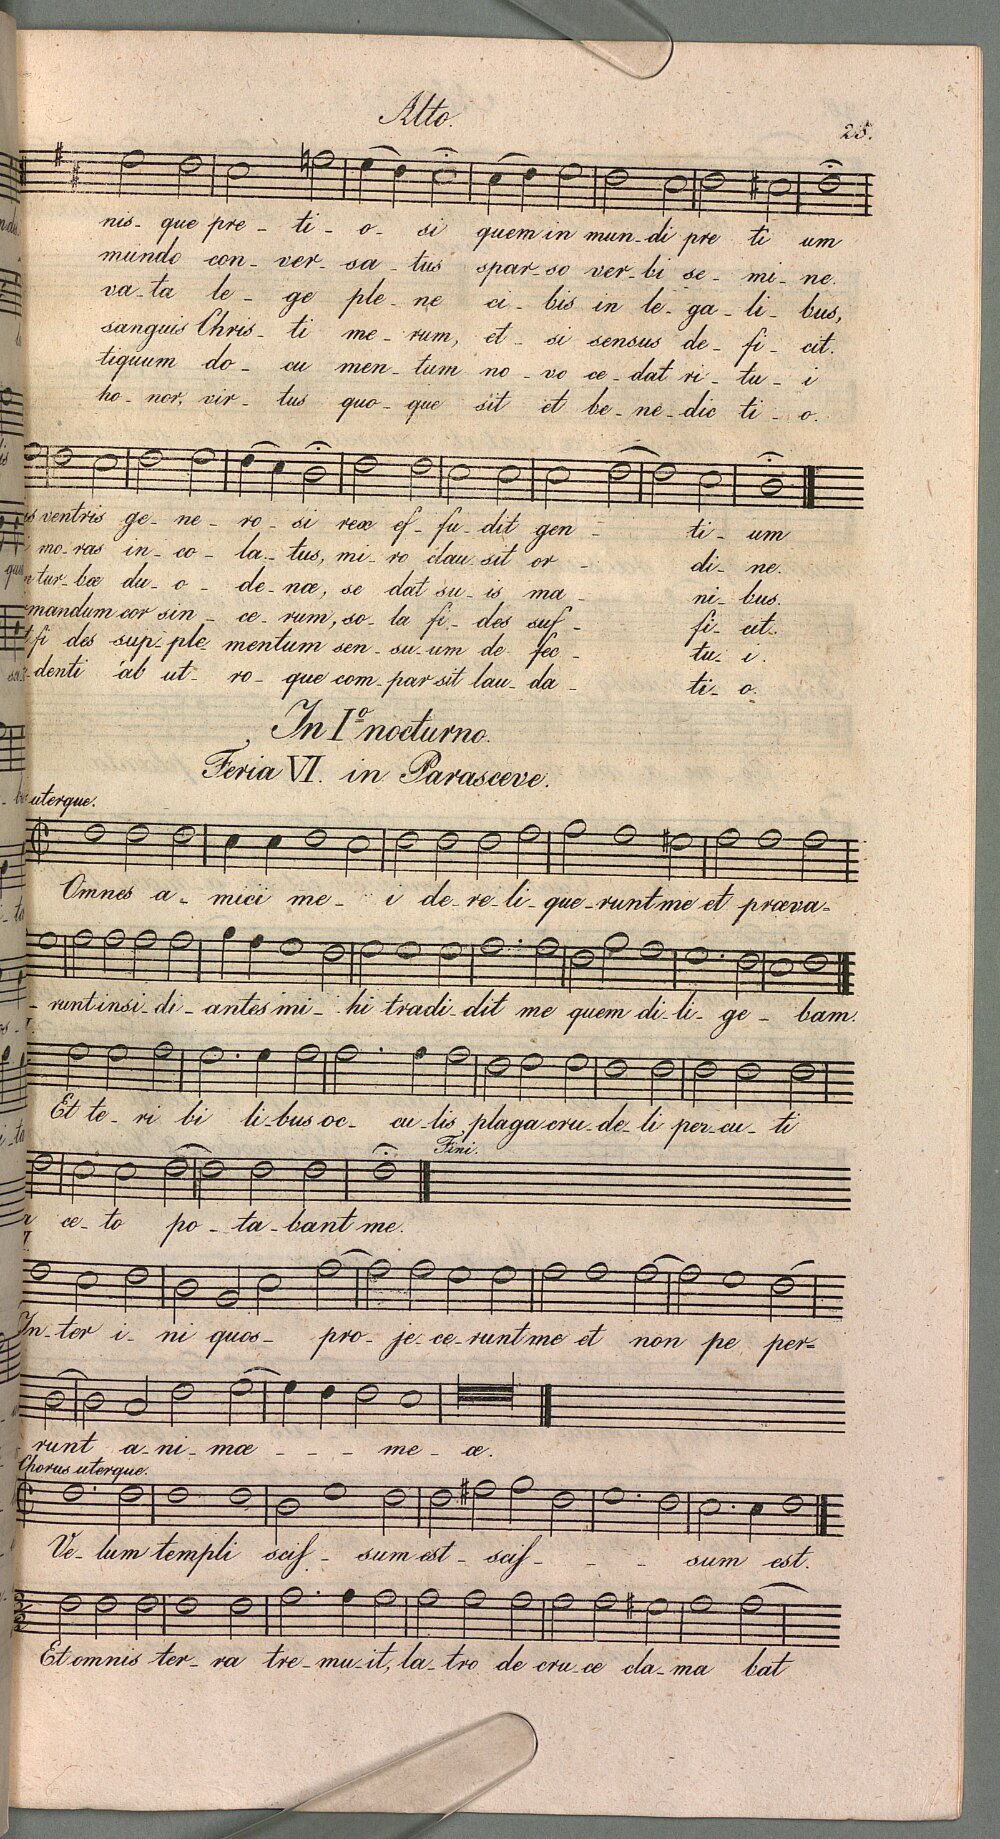 Alto.
25.
nis- que pre - ti - o- si quem in mun-di pre ti um
mundo con- ver- sa- tus spar-so ver-bi se- mi- ne.
va-ta le- ge ple- ne ci- bis in le- ga- li- bus,
sanguis Chris- ti me- rum, et- si sensus de- fi- cit.
tiquum do- cu men- tum no- vo ce-dat ri- tu- i
ho- nor, vir- tus quo- que sit et be- ne- dic ti- o.
ventris ge- ne- ro- si rex ef- fu- dit gen - ti- um
mo-ras in- co- la- tus, mi- ro clau sit or - di- ne.
tur- bæ du- o- de- næ, se dat su- is ma - ni- bus.
mandum cor sin- ce- rum, so- la fi- des suf - fi- cit.
fi des sup- ple- mentum sen- su- um de fec - tu- i.
denti ab ut- ro- que com- par sit lau- da - ti- o.
In Iº nocturno.
Feria VI. in Parasceve.
uterque.
Omnes a- mici me- i de-re-li-que-runt me et præva-
- runt insi-di- antes mi- hi tradi-dit me quem di-li- ge- bam.
Et te- ri bi li- bus oc- cu-lis, plaga cru-de-li per-cu- ti
Fini.
ce- to po- ta- bant me.
In-ter i- ni quos- pro- je- ce- runt me et non pe per=
runt a-ni- mæ - - - me- æ.
Chorus uterque.
Ve- lum templi scis- sum est- scis- - - - sum est.
Et omnis ter- ra tre- mu-it, la- tro de cru ce cla- ma bat